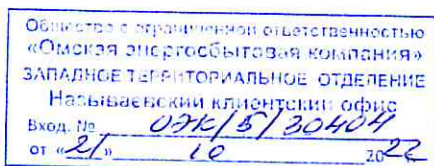 Общество с ограниченной ответственностью
«Омская энергосбытовая компания»
ЗАПАДНОЕ ТЕРРИТОРИАЛЬНОЕ ОТДЕЛЕНИЕ
Называевский клиентский офис
Вход. № ОЭК/5/30404
от «21» 10 2022